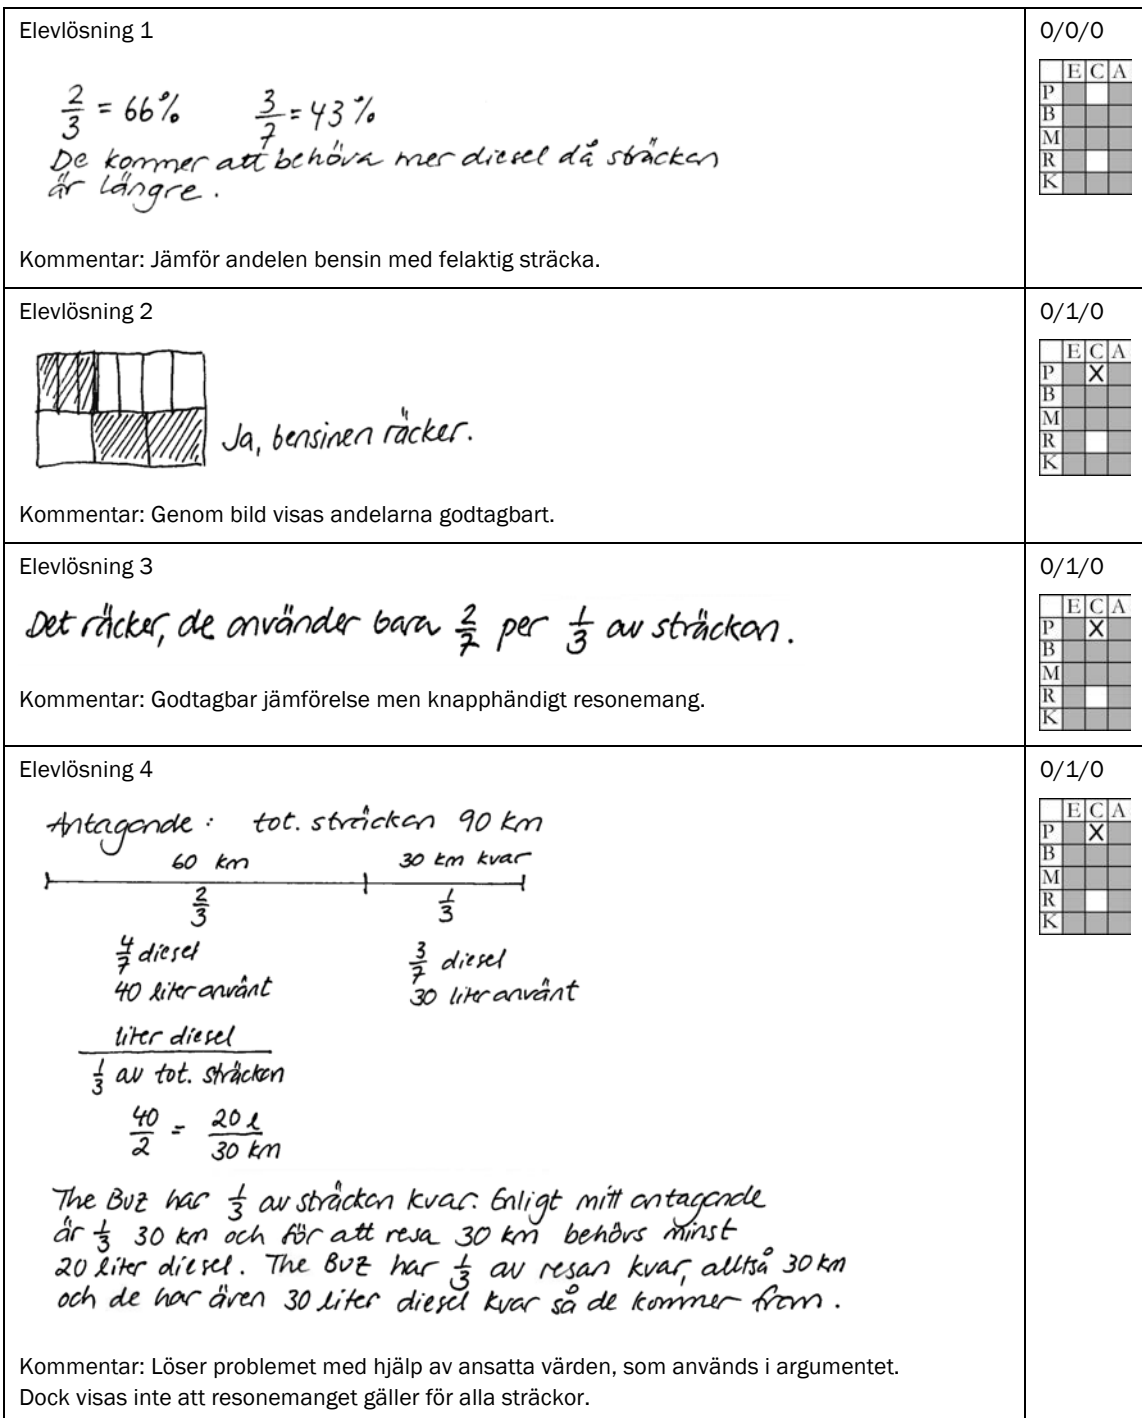 Elevlösning 1
0/0/0
E C A
P
B
M
R
K
2/3 = 66% 3/7 = 43%
De kommer att behöva mer diesel då sträckan
är längre.
Kommentar: Jämför andelen bensin med felaktig sträcka.
Elevlösning 2
0/1/0
E C A
P X
B
M
R
K
Ja, bensinen räcker.
Kommentar: Genom bild visas andelarna godtagbart.
Elevlösning 3
0/1/0
E C A
P X
B
M
R
K
Det räcker, de använder bara 2/7 per 1/3 av sträckan.
Kommentar: Godtagbar jämförelse men knapphändigt resonemang.
Elevlösning 4
0/1/0
E C A
P X
B
M
R
K
Antagande: tot. sträckan 90 km
60 km 30 km kvar
2/3 1/3
4/7 diesel 3/7 diesel
40 liter använt 30 liter använt
liter diesel
1/3 av tot. sträckan
40/2 = 20 l/30 km
The Buz har 1/3 av sträckan kvar. Enligt mitt antagande
är 1/3 30 km och för att resa 30 km behövs minst
20 liter diesel. The Buz har 1/3 av resan kvar, alltså 30 km
och de har även 30 liter diesel kvar så de kommer fram.
Kommentar: Löser problemet med hjälp av ansatta värden, som används i argumentet.
Dock visas inte att resonemanget gäller för alla sträckor.